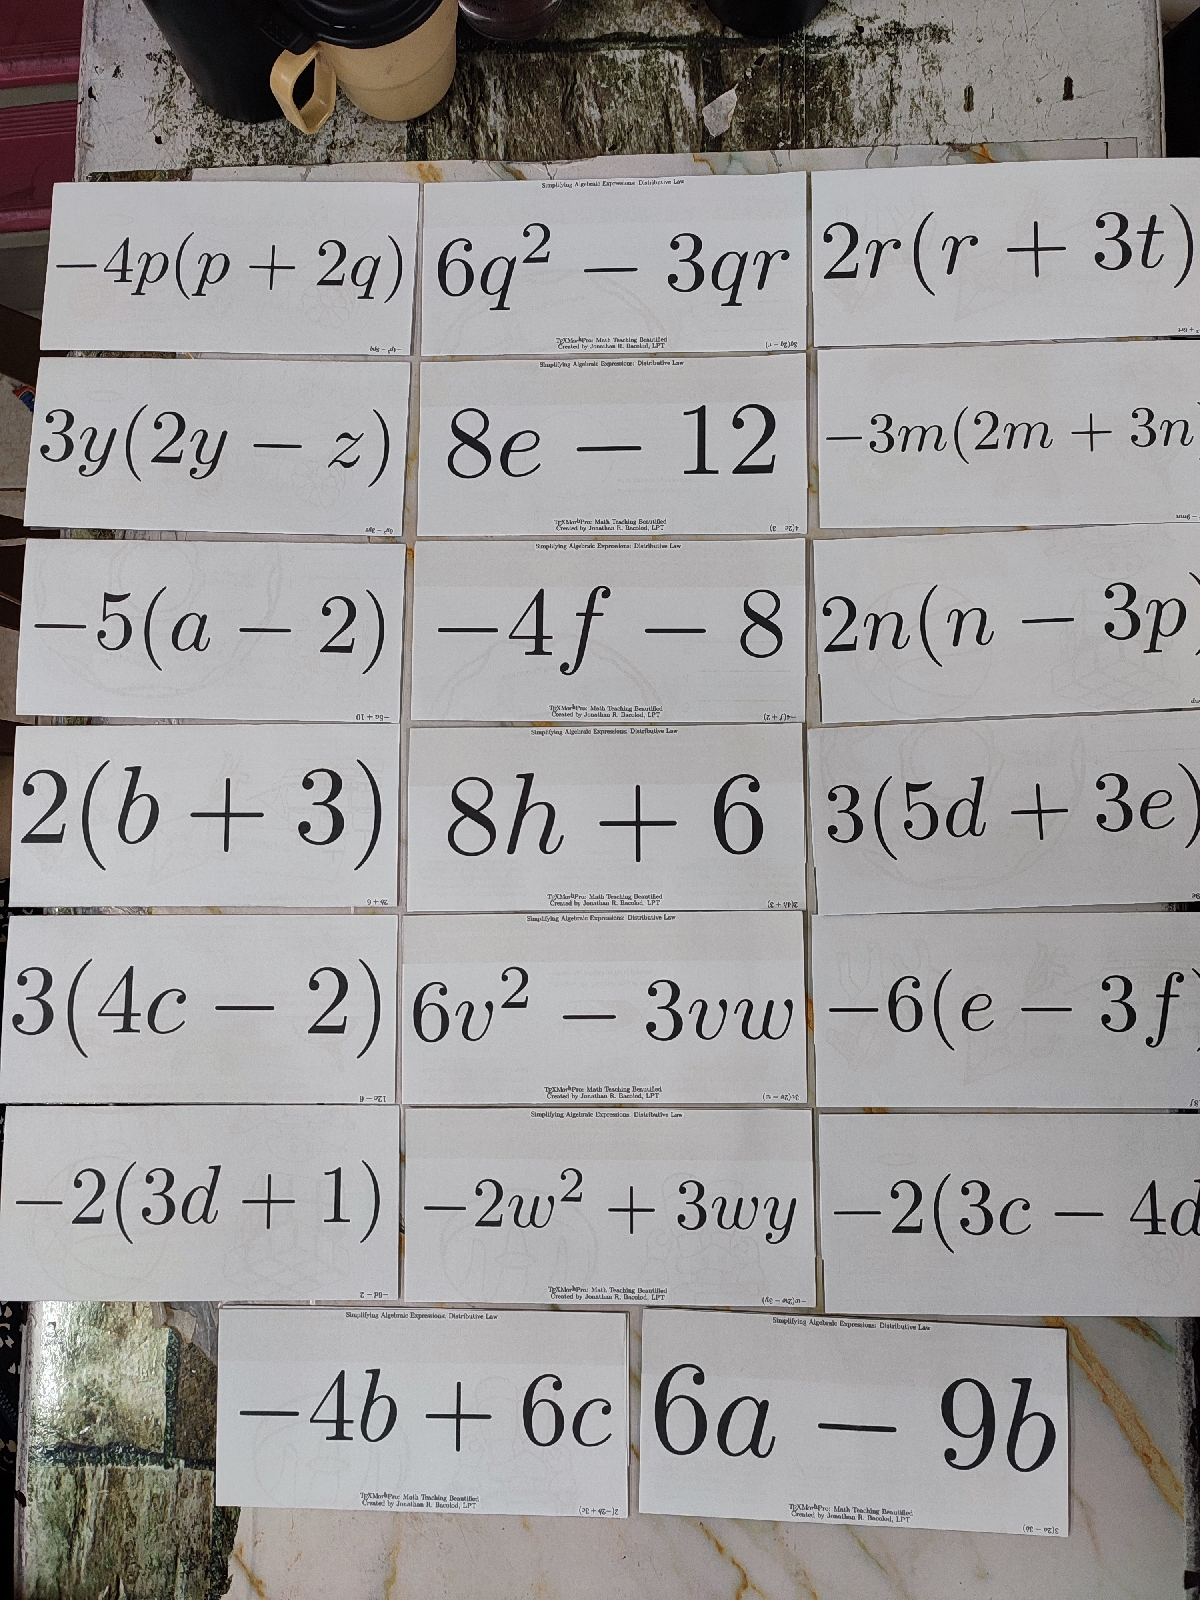 −4p(p + 2q)
−4p² − 8pq
Simplifying Algebraic Expressions: Distributive Law
6q² − 3qr
TEXMathPro: Math Teaching Beautified
Created by Jonathan R. Bacolod, LPT
3q(2q − r)
2r(r + 3t)
3y(2y − z)
6y² − 3yz
Simplifying Algebraic Expressions: Distributive Law
8e − 12
Math Teaching Beautified
Created by Jonathan R. Bacolod, LPT
4(2e − 3)
−3m(2m + 3n)
−5(a − 2)
−5a + 10
Simplifying Algebraic Expressions: Distributive Law
−4f − 8
Math Teaching Beautified
Created by Jonathan R. Bacolod, LPT
−4(f + 2)
2n(n − 3p)
2(b + 3)
2b + 6
Simplifying Algebraic Expressions: Distributive Law
8h + 6
Math Teaching Beautified
Created by Jonathan R. Bacolod, LPT
2(4h + 3)
3(5d + 3e)
3(4c − 2)
12c − 6
Simplifying Algebraic Expressions: Distributive Law
6v² − 3vw
Math Teaching Beautified
Created by Jonathan R. Bacolod, LPT
3v(2v − w)
−6(e − 3f)
−2(3d + 1)
−6d − 2
Simplifying Algebraic Expressions: Distributive Law
−2w² + 3wy
Math Teaching Beautified
Created by Jonathan R. Bacolod, LPT
−w(2w − 3y)
−2(3c − 4d
Simplifying Algebraic Expressions: Distributive Law
−4b + 6c
Math Teaching Beautified
Created by Jonathan R. Bacolod, LPT
2(−2b + 3c)
Simplifying Algebraic Expressions: Distributive Law
6a − 9b
Math Teaching Beautified
Created by Jonathan R. Bacolod, LPT
3(2a − 3b)